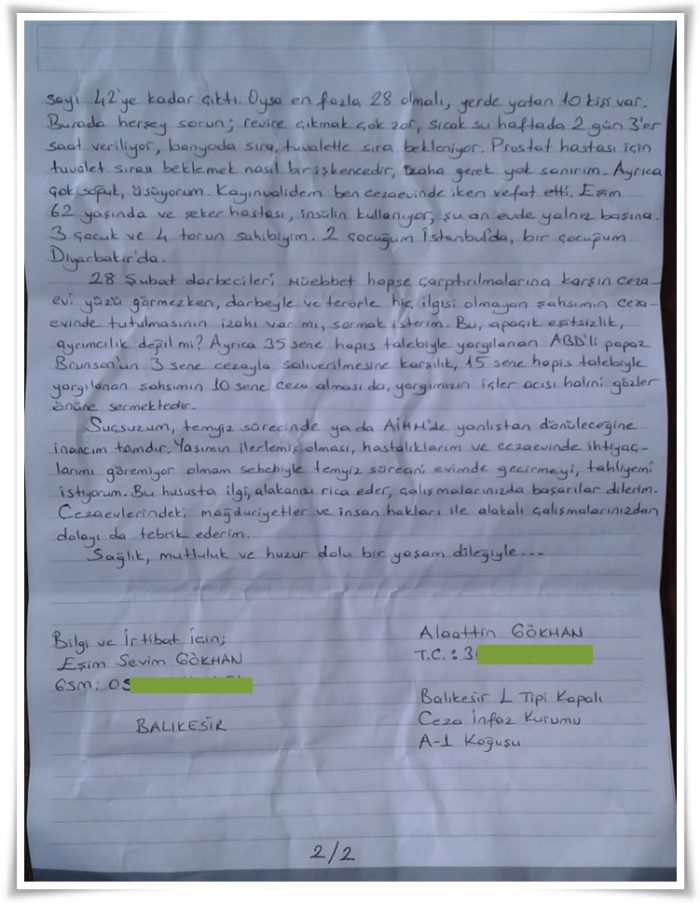 sayı 42'ye kadar çıktı. Oysa en fazla 28 olmalı, yerde yatan 10 kişi var.
Burada herşey sorun; revire çıkmak çok zor, sıcak su haftada 2 gün 3'er
saat veriliyor, banyoda sıra, tuvalette sıra bekleniyor. Prostat hastası için
tuvalet sırası beklemek nasıl bir işkencedir, izaha gerek yok sanırım. Ayrıca
çok soğuk, üşüyorum. Kayınvalidem ben cezaevinde iken vefat etti. Eşim
62 yaşında ve şeker hastası, insülin kullanıyor, şu an evde yalnız başına.
3 çocuk ve 4 torun sahibiyim. 2 çocuğum İstanbul'da, bir çocuğum
Diyarbakır'da.
28 Şubat darbecileri müebbet hapse çarptırılmalarına karşın ceza-
evi yüzü görmezken, darbeyle ve terörle hiç ilgisi olmayan şahsımın ceza-
evinde tutulmasının izahı var mı, sormak isterim. Bu, apaçık eşitsizlik,
ayrımcılık değil mi? Ayrıca 35 sene hapis talebiyle yargılanan ABD'li papaz
Brunson'un 3 sene cezayla salıverilmesine karşılık, 15 sene hapis talebiyle
yargılanan şahsımın 10 sene ceza alması da, yargımızın içler acısı halini gözler
önüne sermektedir.
Suçsuzum, temyiz sürecinde ya da AİHM'de yanlıştan dönüleceğine
inancım tamdır. Yaşımın ilerlemiş olması, hastalıklarım ve cezaevinde ihtiyaç-
larımı göremiyor olmam sebebiyle temyiz sürecini evimde geçirmeyi, tahliyemi
istiyorum. Bu hususta ilgi, alakanızı rica eder, çalışmalarınızda başarılar dilerim.
Cezaevlerindeki mağduriyetler ve insan hakları ile alakalı çalışmalarınızdan
dolayı da tebrik ederim.
Sağlık, mutluluk ve huzur dolu bir yaşam dileğiyle...
Bilgi ve İrtibat İçin;
Eşim Sevim GÖKHAN
GSM: 05
BALIKESİR
Alaattin GÖKHAN
T.C.: 3
Balıkesir L Tipi Kapalı
Ceza İnfaz Kurumu
A-1 Koğuşu
2/2